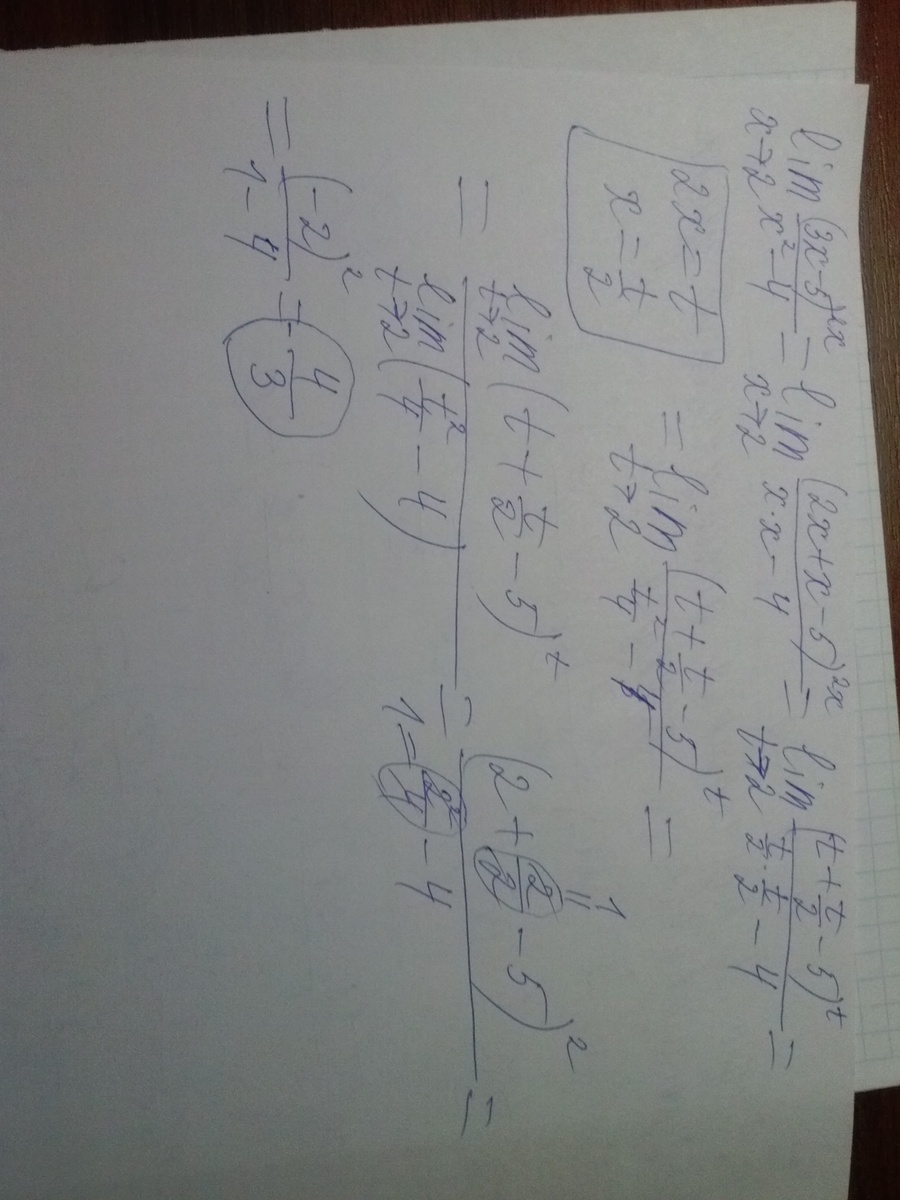 lim x→2 (3x-5)^2x / x²-4 = lim x→2 (2x+x-5)^2x / x·x-4 = lim t→2 (t+t/2-5)^t / t/2·t/2-4 =
2x=t
x=t/2
= lim t→2 (t+t/2-5)^t / t²/4-4 =
= lim t→2 (t+t/2-5)^t / lim t→2 (t²/4-4) = (2+2/2-5)² / 2²/4-4 =
1 =
1 =
= (-2)² / 1-4 = -4/3